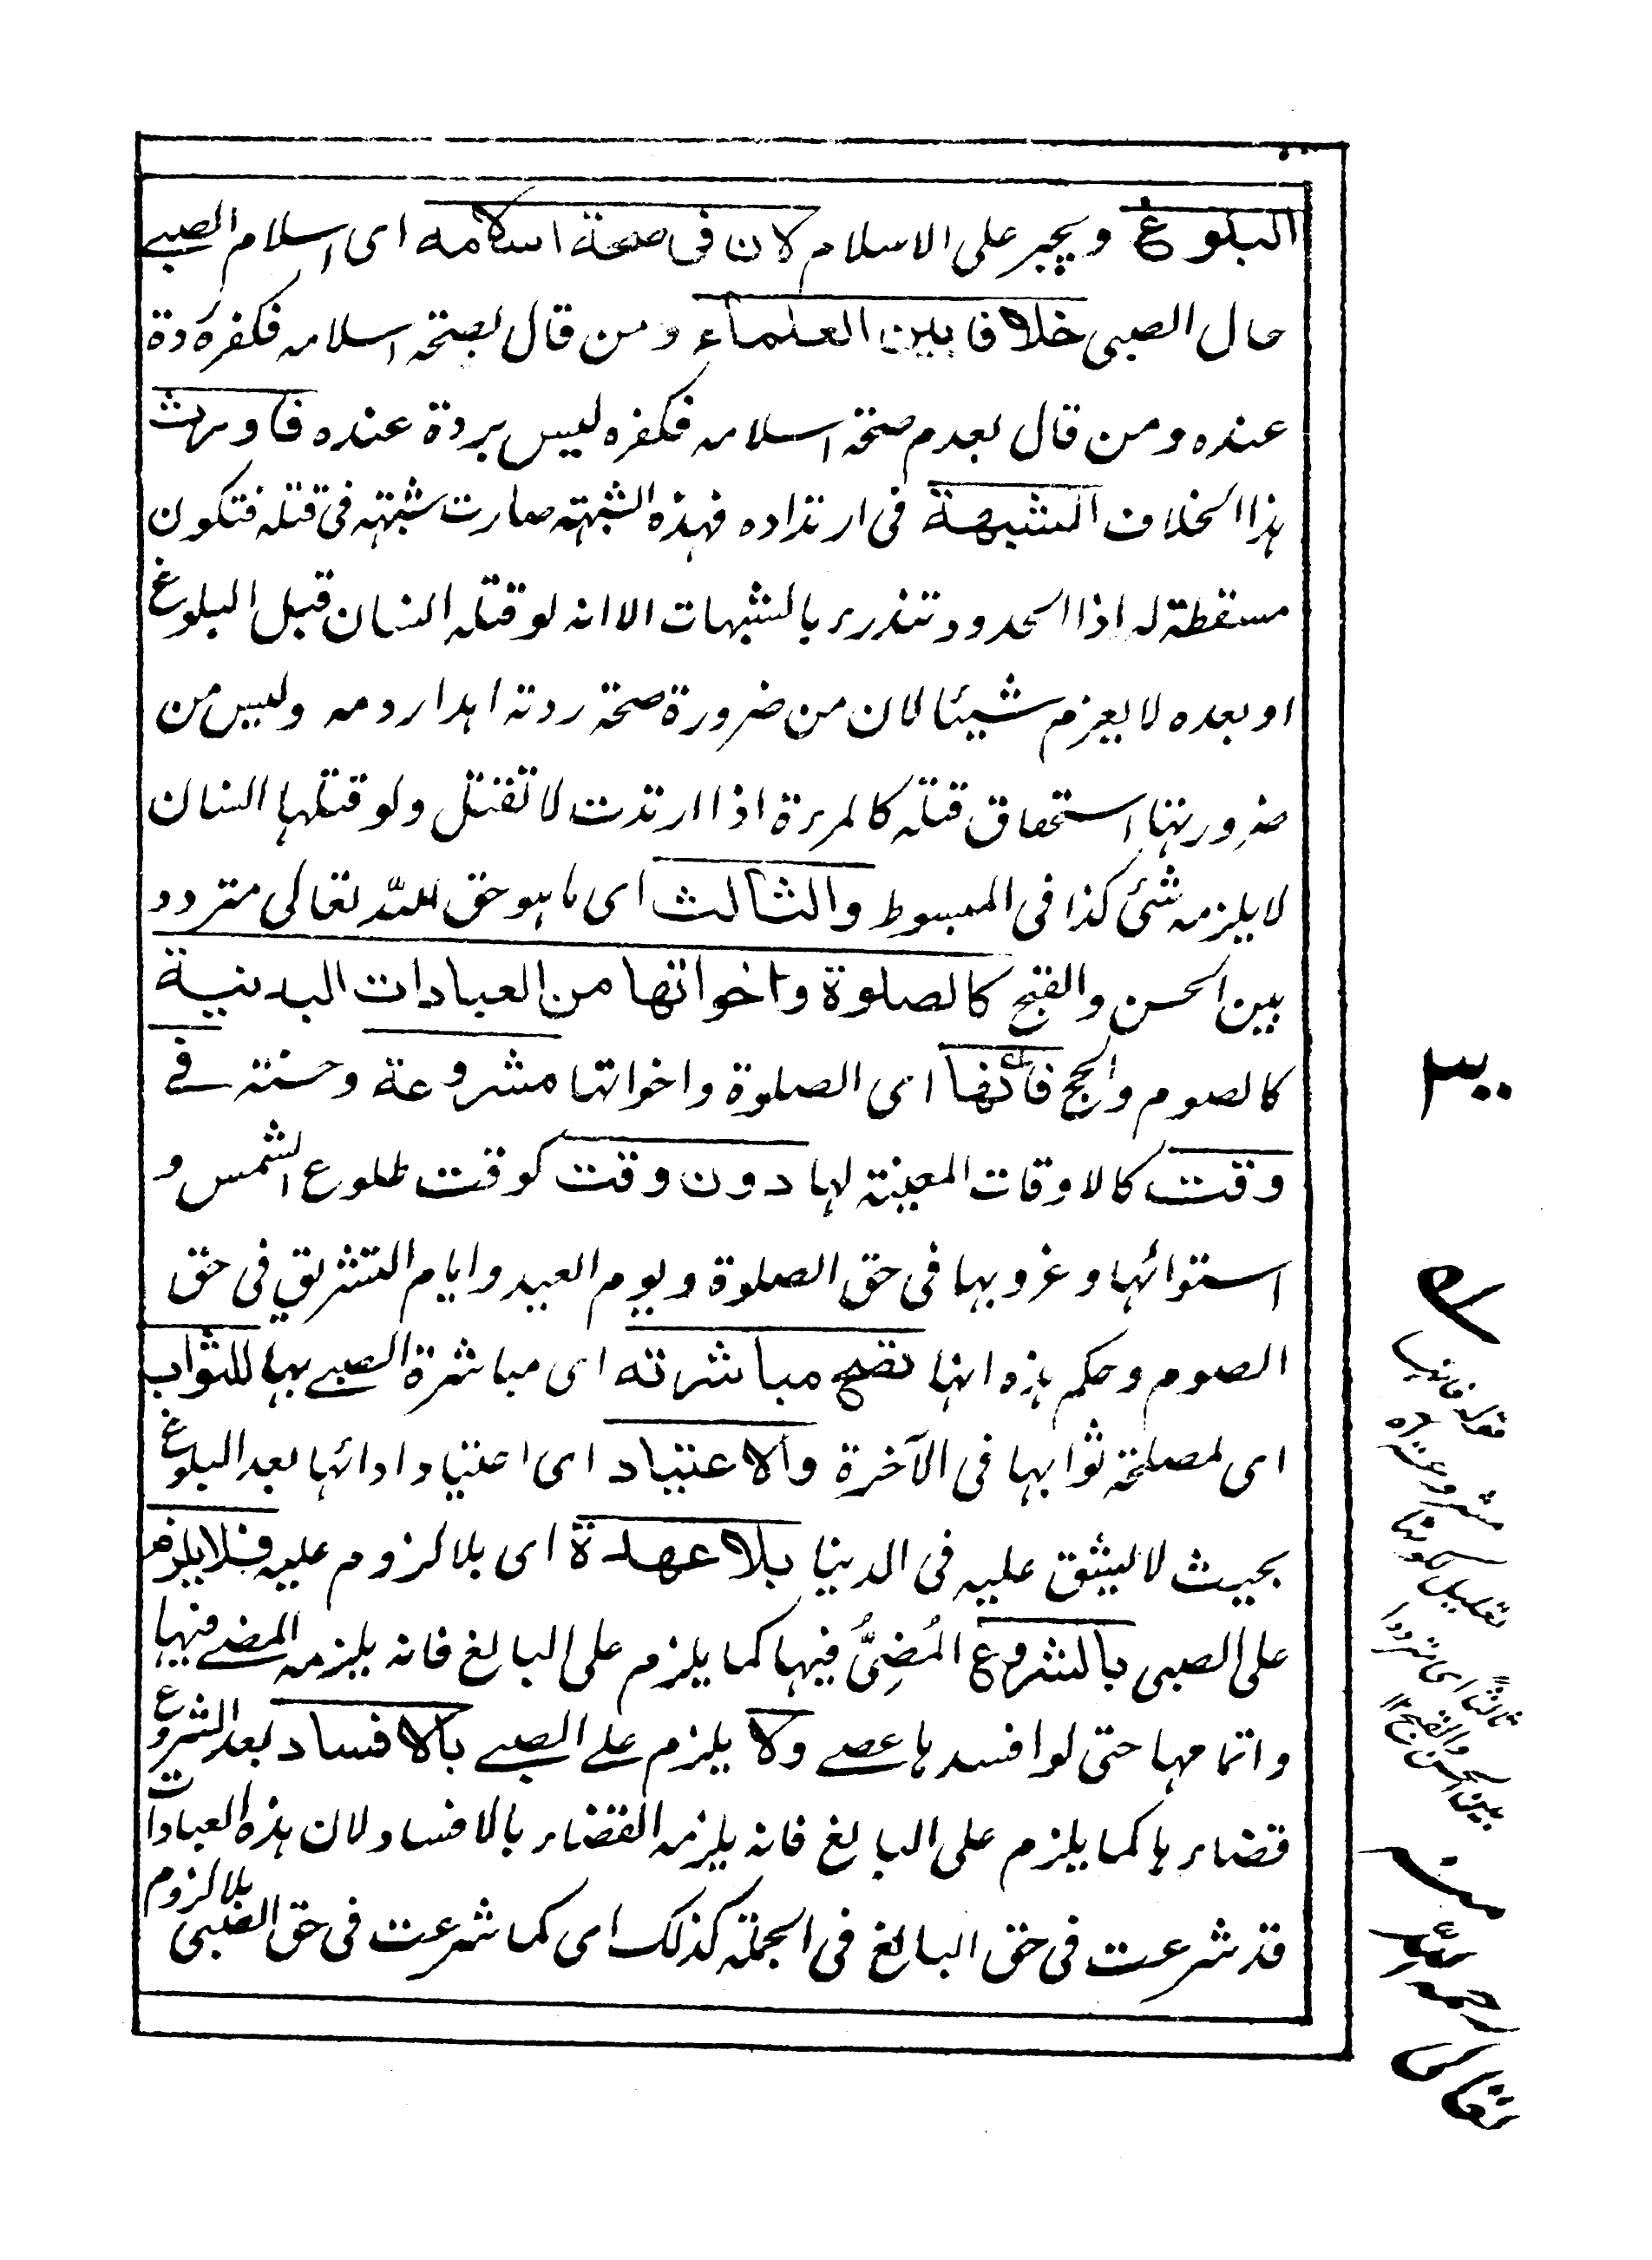 البلوغ ويجبر على الاسلام لان فى صحة اسلامه اى اسلام الصبے
حال الصبى خلافا بين العلماء ومن قال بصحة اسلامه فكفره ردة
عنده ومن قال بعدم صحة اسلامه فكفره ليس بردة عنده فاورث
هذا الخلاف الشبهة فى ارتداده فهذه الشبهة صارت شبهة فى قتله فتكون
مسقطة له اذا الحدود تندرء بالشبهات الا انه لو قتله انسان قبل البلوغ
او بعده لا يغرم شيئا لان من ضرورة صحة ردته اهدار دمه وليس من
ضرورتها استحقاق قتله كالمرءة اذا ارتدت لا تقتل ولو قتلها انسان
لا يلزمه شئ كذا فى المبسوط والثالث اى ما هو حق لله تعالى متردد
بين الحسن والقبح كالصلوة واخواتها من العبادات البدنية
كالصوم والحج فانها اى الصلوة واخواتها مشروعة وحسنة فے
وقت كالاوقات المعينة لها دون وقت كوقت طلوع الشمس و
استوائها وغروبها فى حق الصلوة ويوم العيد وايام التشريق فى حق
الصوم وحكم هذه انها تصح مباشرته اى مباشرة الصبے بها للثواب
اى لمصلحة ثوابها فى الآخرة والاعتياد اى اعتياد ادائها بعد البلوغ
بحيث لا يشق عليه فى الدنيا بلا عهدة اى بلا لزوم عليه فلا يلزم
على الصبى بالشروع المُضِىُّ فيها كما يلزم على البالغ فانه يلزمه المضے فيها
واتمامها حتى لو افسدها عصے ولا يلزم علے الصبے بالافساد بعد الشروع
قضاءها كما يلزم على البالغ فانه يلزمه القضاء بالافساد لان هذه العبادات
قد شرعت فى حق البالغ فى الجملة كذلك اى كما شرعت فى حق الصبى بلا لزوم
٣٠٠
قوله فانها
مشروعة اه
تعليل لكونها
ثالثا اى مترددا
بين الحسن والقبح ١٢
منه
رحمه الله
تعالى